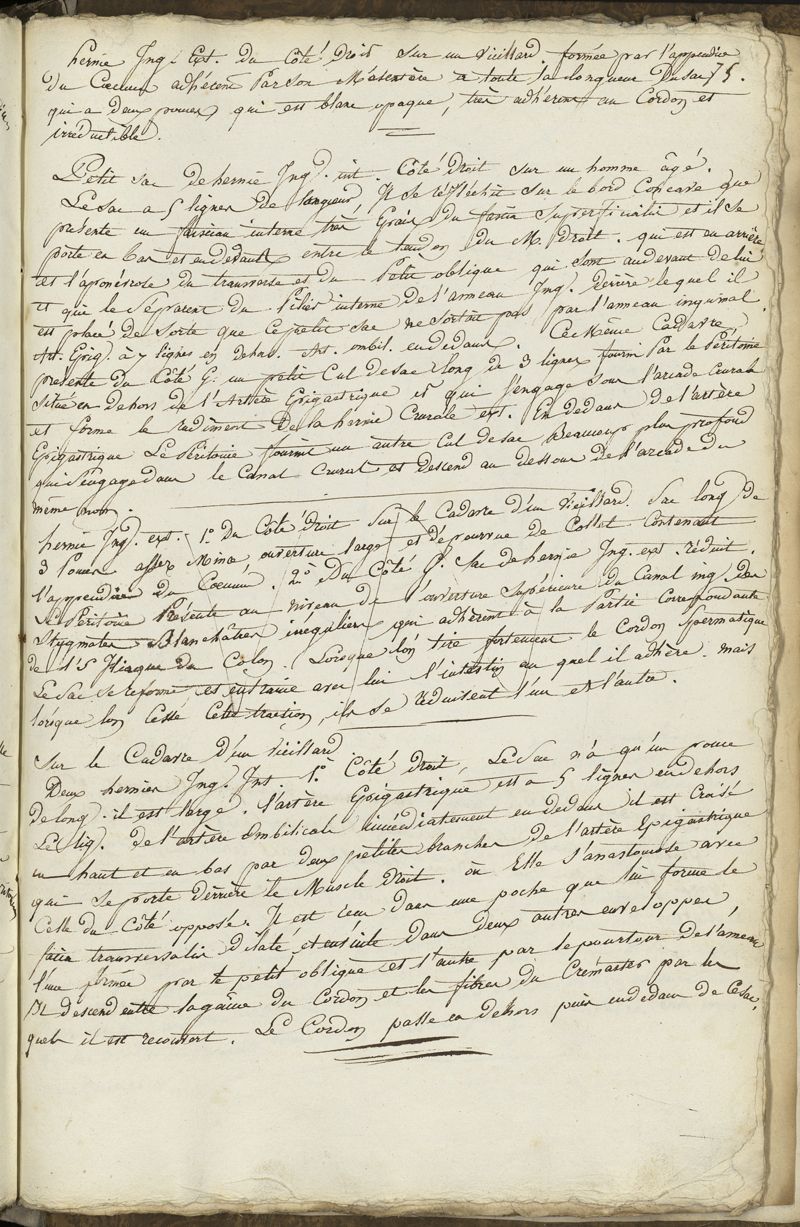 hernie Ing. Ext. du Côté Droit sur un Vieillard. formée par l'appendice
du Coecum adhérent Par son Mésentère a toute la longueur Du sac 75.
qui a deux pouces, qui est blanc opaque, très adhérent au Cordon et
irréductible.
Petit sac de hernie Ing. int. Côté Droit sur un homme âgé.
Le Sac a 5 lignes de longueur, Il se réfléchit sur le bord Concave que
présente un faisceau interne très Epais Du fascia Superficialis et il se
porte en bas et en dedans entre le tendon du M. Droit. qui est en arrière
et l'aponévrose du transverse et du Petit oblique qui sont audevant de lui
et qui le séparent du Pilier interne de l'anneau Ing. derrière lequel il
est placé de sorte que ce petit sac ne sortait pas par l'anneau inguinal.
Art. Epig. à 7 lignes en dehors. Art. ombil. en dedans. Ce Même Cadavre
présente du Côté G. un petit Cul de sac long de 3 lignes fourni Par le Péritoine
situé en dehors de l'Artère Epigastrique et qui s'engage sous l'arcade Crurale
et forme le rudiment De la hernie Crurale ext. En dedans de l'artère
Epigastrique Le Péritoine fournit un autre Cul de sac Beaucoup plus profond
qui s'engage dans le Canal Crural et descend au dessous de l'arcade du
même nom.
hernie Ing. ext. 1.º Du Côté droit sur le Cadavre d'un Vieillard. Sac long de
3 Pouces assez Mince ouverture large et dépourvue de Collet Contenant
l'appendice du Coecum. 2.º Du Côté G. Sac de hernie Ing. ext. réduit.
Le Péritoine Présente au niveau de l'ouverture Supérieure du Canal ing. des
Stygmates Blanchâtres irréguliers qui adhèrent à la Partie Correspondante
de l'S Iliaque du Colon. Lorsque l'on tire fortement le Cordon Spermatique
Le Sac se reforme et entraine avec lui l'intestin au quel il adhère. mais
lorsque lon Cesse Cette traction, ils se réduisent l'un et l'autre.
Sur le Cadavre d'un Vieillard
Deux hernies Ing. Int. 1.º Côté Droit, Le Sac n'a qu'un pouce
de long. il est large. l'artère Epigastrique est a 5 lignes en dehors
Le lig. de l'artère Ombilicale immédiatement en dedans il est Croisé
en haut et en bas par deux petites branches de l'artère Epigastrique
qui se porte derrière le Muscle Droit. où Elle s'anastomose avec
Celle du Côté opposé. Il est reçu dans une poche que lui forme le
fascia transversalis dilaté, et ensuite dans deux autres enveloppes,
l'une formée par le petit oblique et l'autre par le pourtour de l'anneau
Il descend entre la gaine du Cordon et les fibres du Crémaster par les
quels il est recouvert. Le Cordon passe en dehors puis en dedans de Ce sac.